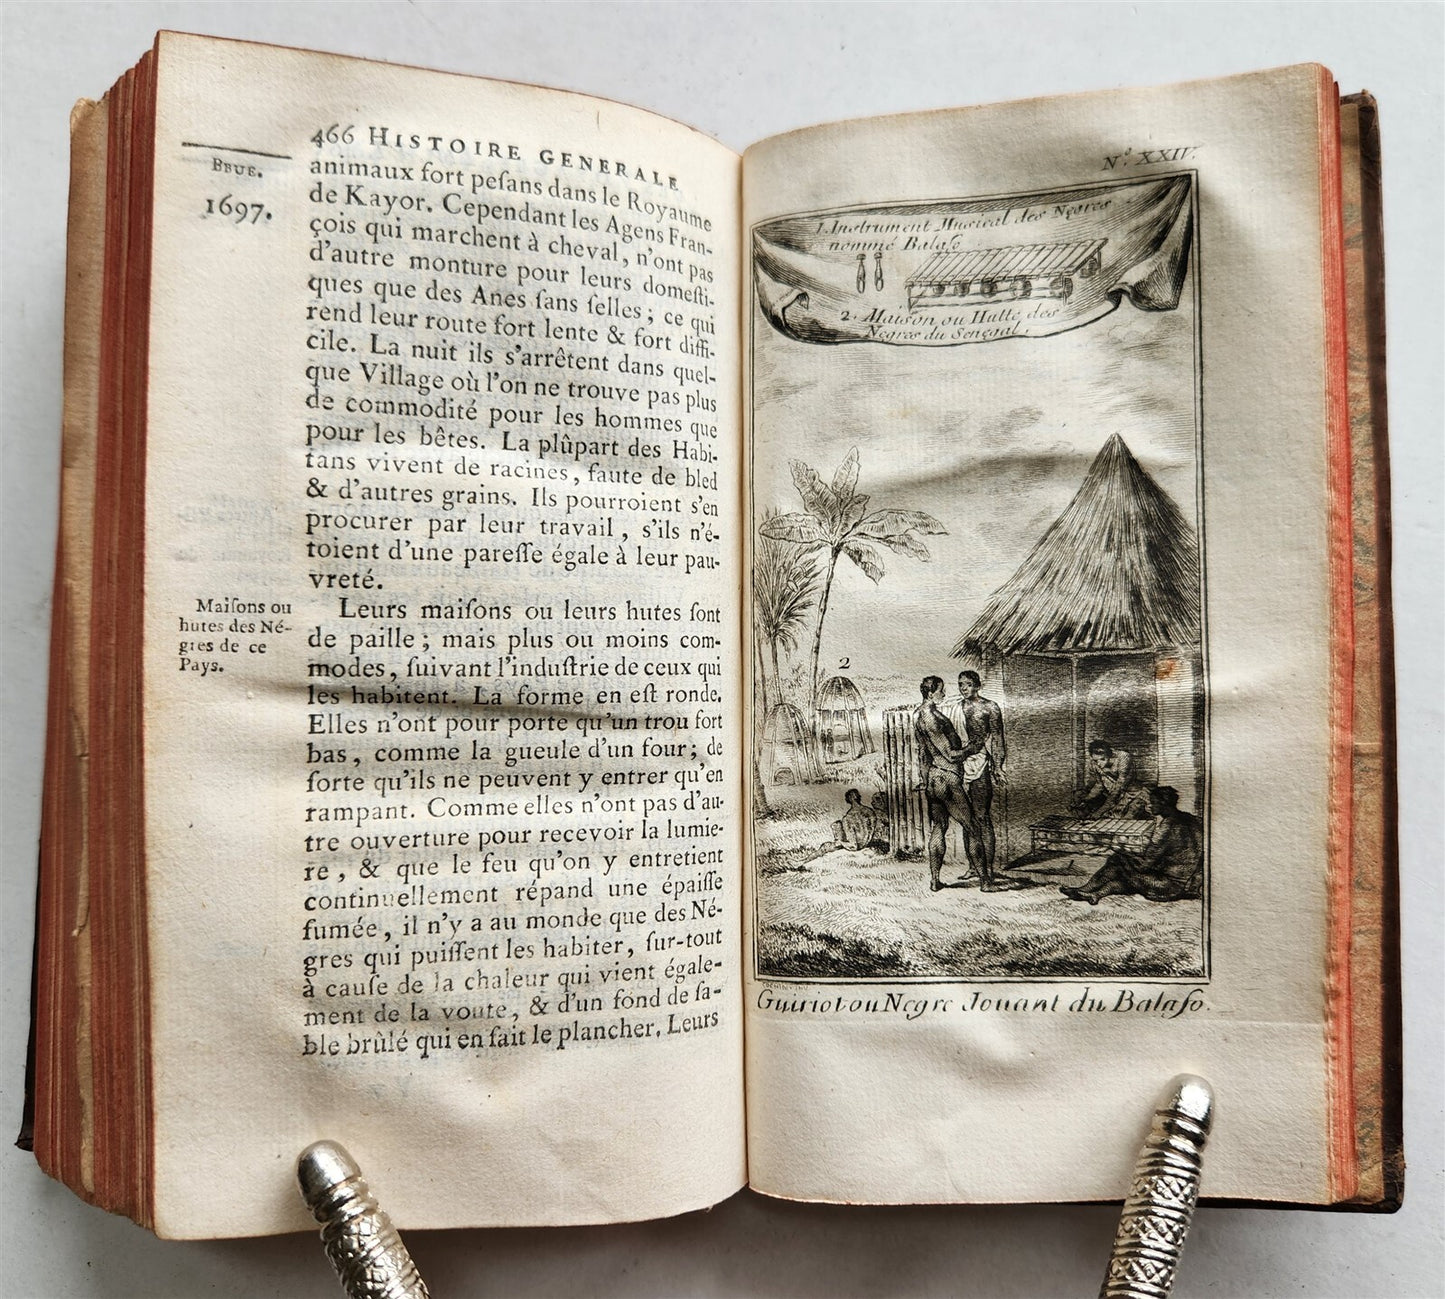 466 HISTOIRE GENERALE
BRUE.
1697.
animaux fort peſans dans le Royaume
de Kayor. Cependant les Agens Fran-
çois qui marchent à cheval, n'ont pas
d'autre monture pour leurs domeſti-
ques que des Anes ſans ſelles ; ce qui
rend leur route fort lente & fort diffi-
cile. La nuit ils s'arrêtent dans quel-
que Village où l'on ne trouve pas plus
de commodité pour les hommes que
pour les bêtes. La plûpart des Habi-
tans vivent de racines, faute de bled
& d'autres grains. Ils pourroient s'en
procurer par leur travail, s'ils n'é-
toient d'une pareſſe égale à leur pau-
vreté.
Maiſons ou
hutes des Né-
gres de ce
Pays.
Leurs maiſons ou leurs hutes ſont
de paille ; mais plus ou moins com-
modes, ſuivant l'induſtrie de ceux qui
les habitent. La forme en eſt ronde.
Elles n'ont pour porte qu'un trou fort
bas, comme la gueule d'un four ; de
ſorte qu'ils ne peuvent y entrer qu'en
rampant. Comme elles n'ont pas d'au-
tre ouverture pour recevoir la lumie-
re, & que le feu qu'on y entretient
continuellement répand une épaiſſe
fumée, il n'y a au monde que des Né-
gres qui puiſſent les habiter, ſur-tout
à cauſe de la chaleur qui vient égale-
ment de la voute, & d'un fond de ſa-
ble brûlé qui en fait le plancher. Leurs
N.º XXIV.
1. Instrument Musical des Negres
nommé Balafo
2. Maison ou Hutte des
Negres du Senegal.
2
2
Guiriot ou Negre Jouant du Balafo.